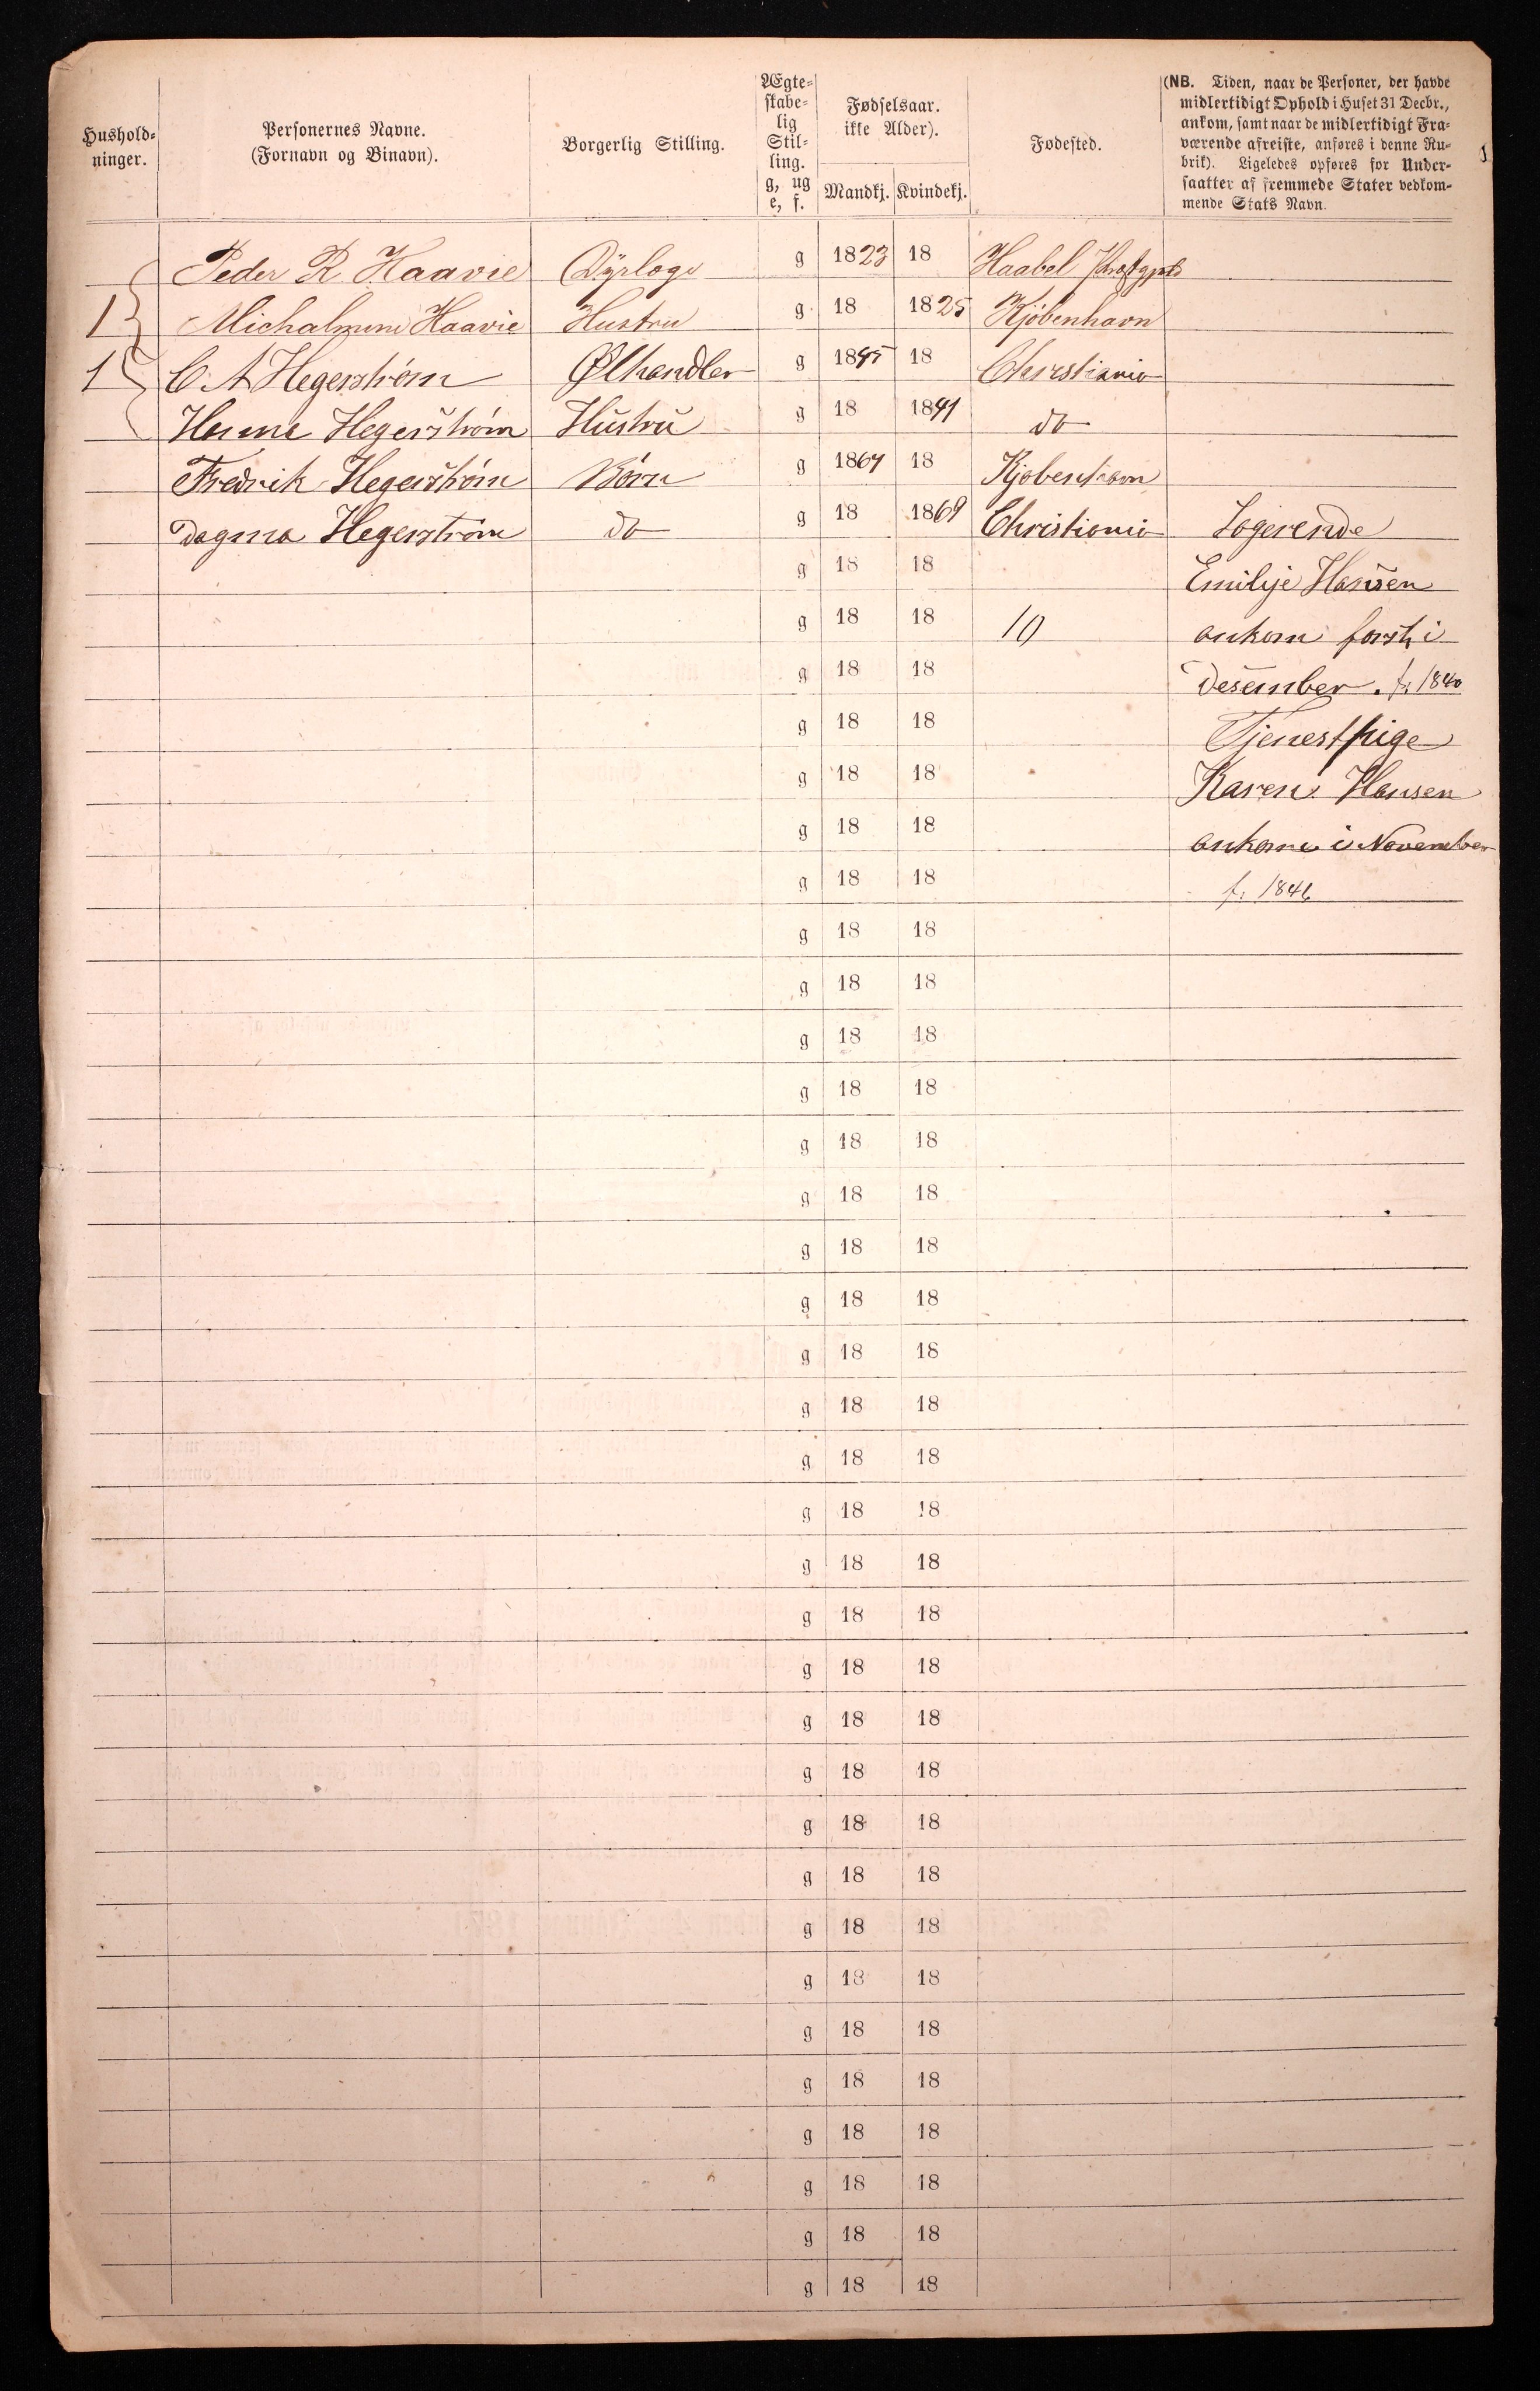 Hushold-
ninger.
Personernes Navne.
(Fornavn og Binavn).
Borgerlig Stilling.
Ægte-
skabe-
lig
Stil-
ling.
g, ug
e, f.
Fødselsaar.
ikke Alder).
Mandkj. Kvindekj.
Fødested.
(NB. Tiden, naar de Personer, der havde
midlertidigt Ophold i Huset 31 Decbr.,
ankom, samt naar de midlertidigt Fra-
værende afreiste, anføres i denne Ru-
brik). Ligeledes opføres for Under-
saatter af fremmede Stater vedkom-
mende Stats Navn.
Peder R Haavie Dÿrlæge g 1823 18 Haabøl
1 Haavie Hustru g 18 1825 Kjöbenhavn
1 C. A Hegerström Ølhandler g 1845 18 Christiania
Hanna Hegerström Hustru g 18 1841 do
Fredrik Hegerström Börn g 1867 18 Kjobenhavn
Dagma Hegerström do g 18 1869 Christiania Logerende
g 18 18 Emilije Hansen
g 18 18 10 ankom forst i
g 18 18 Desember. f: 1840
g 18 18 Tjenestpige
g 18 18 Karen Hansen
g 18 18 ankom i November
g 18 18 f: 1846
g 18 18
g 18 18
g 18 18
g 18 18
g 18 18
g 18 18
g 18 18
g 18 18
g 18 18
g 18 18
g 18 18
g 18 18
g 18 18
g 18 18
g 18 18
g 18 18
g 18 18
g 18 18
g 18 18
g 18 18
g 18 18
g 18 18
g 18 18
g 18 18
g 18 18
g 18 18
g 18 18